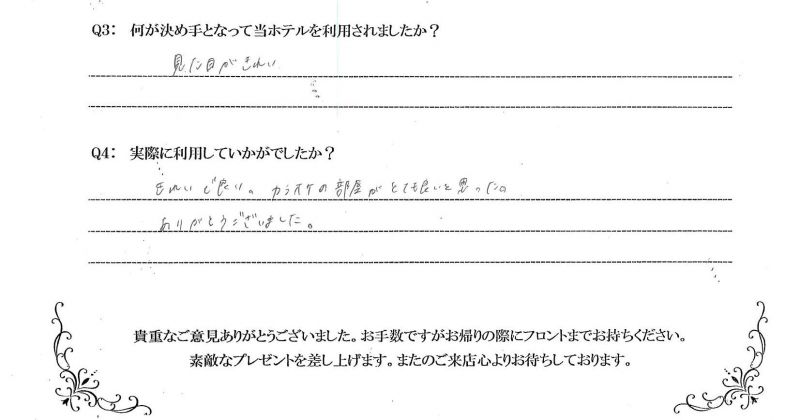 Q3: 何が決め手となって当ホテルを利用されましたか?
見た目がきれい
Q4: 実際に利用していかがでしたか?
きれいで良い。カラオケの部屋がとても良いと思った。
ありがとうございました。
貴重なご意見ありがとうございました。お手数ですがお帰りの際にフロントまでお持ちください。
素敵なプレゼントを差し上げます。またのご来店心よりお待ちしております。